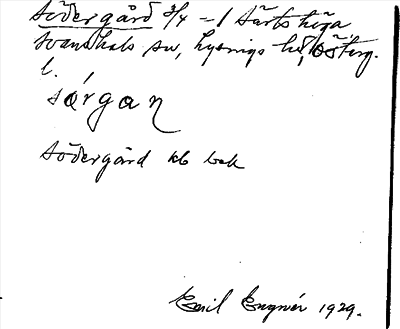 Södergård 3/4 - 1 Särtshöga
Svanshals sn, Lysings hd, Österg.
l.
sørgan
Södergård kb bek
Emil Engnér 1929.